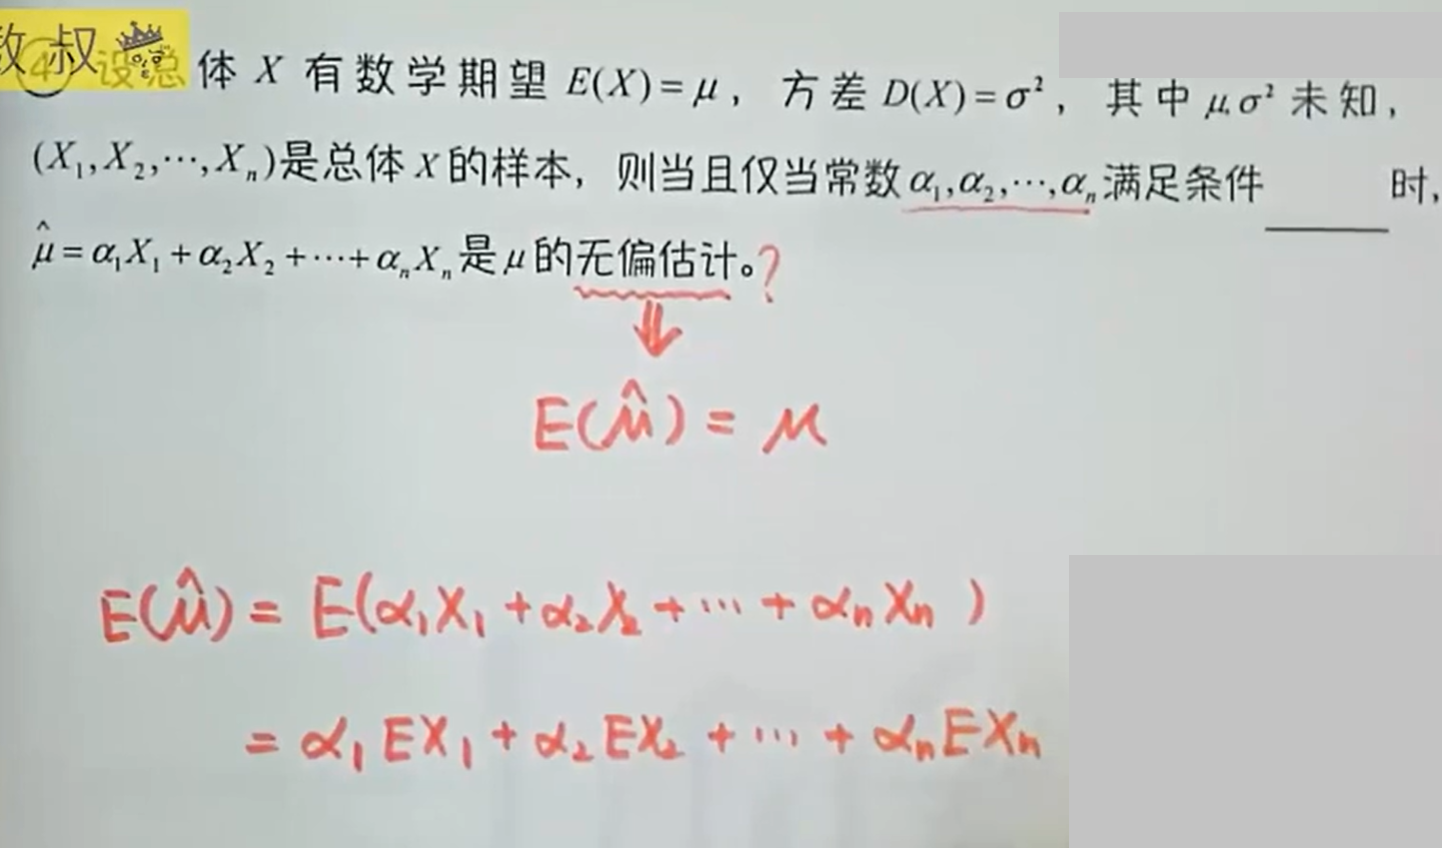 数叔
④设总体 X 有数学期望 E(X)=μ，方差 D(X)=σ²，其中 μ,σ² 未知，
(X₁,X₂,⋯,Xₙ)是总体 X 的样本，则当且仅当常数 α₁,α₂,⋯,αₙ 满足条件______时，
μ̂=α₁X₁+α₂X₂+⋯+αₙXₙ 是 μ 的无偏估计。?
⇓
E(μ̂) = μ
E(μ̂) = E(α₁X₁ + α₂X₂ + ⋯ + αₙXₙ )
= α₁EX₁ + α₂EX₂ + ⋯ + αₙEXₙ